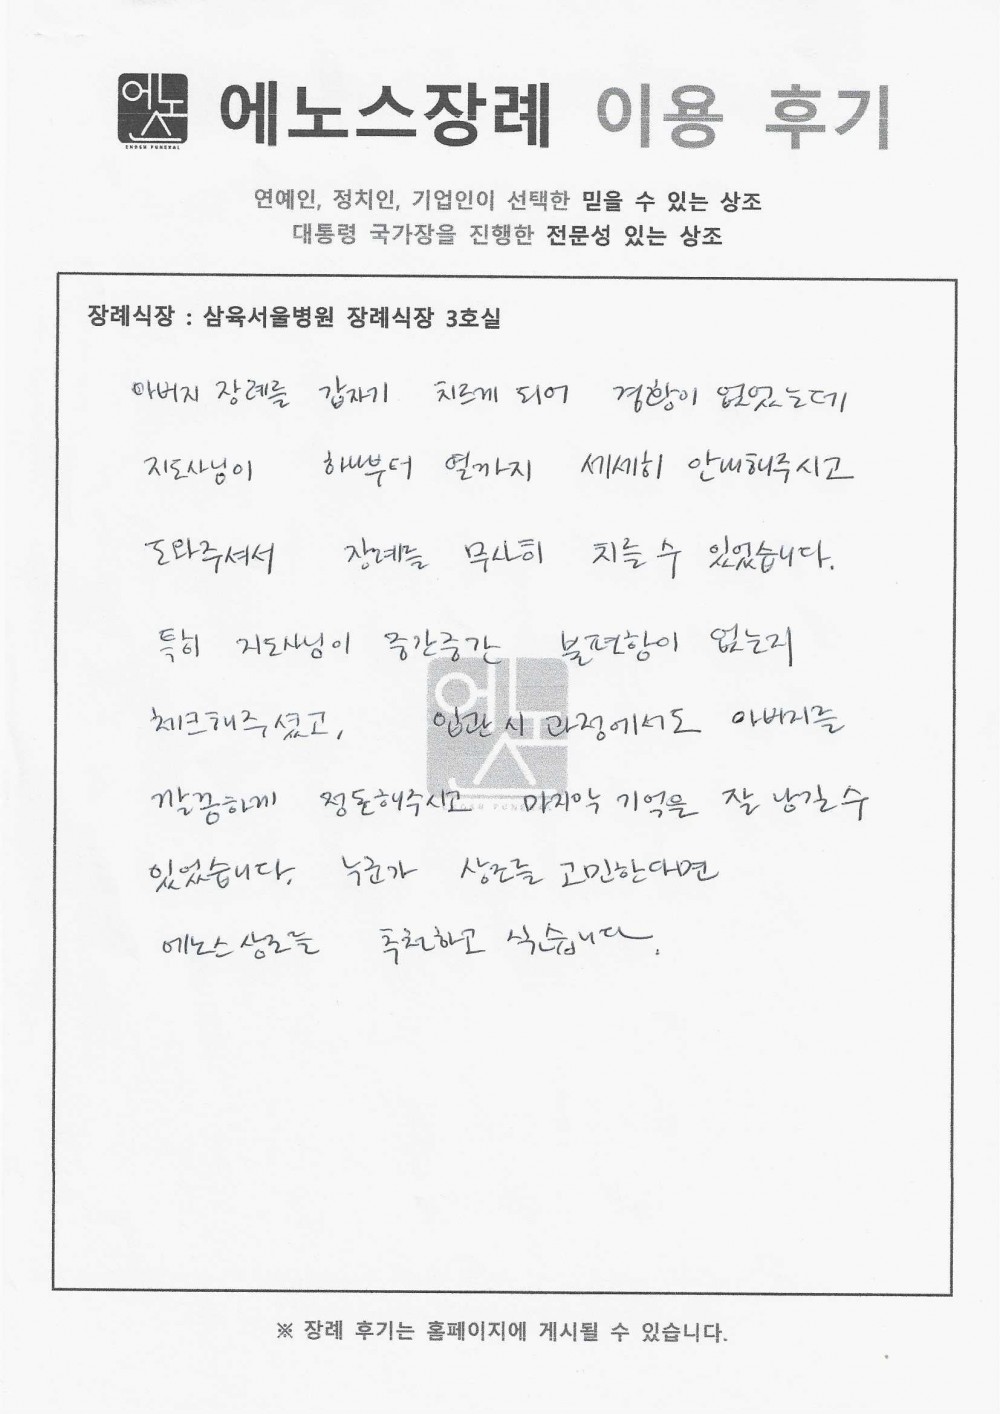 에노스장례 이용 후기
ENOSH FUNERAL
연예인, 정치인, 기업인이 선택한 믿을 수 있는 상조
대통령 국가장을 진행한 전문성 있는 상조
장례식장 : 삼육서울병원 장례식장 3호실
아버지 장례를 갑자기 치르게 되어 경황이 없었는데
지도사님이 하나부터 열까지 세세히 안내해주시고
도와주셔서 장례를 무사히 치를 수 있었습니다.
특히 지도사님이 중간중간 불편함이 없는지
체크해주셨고, 입관 시 과정에서도 아버지를
깔끔하게 정돈해주시고 마지막 기억을 잘 남길 수
있었습니다. 누군가 상조를 고민한다면
에노스 상조를 추천하고 싶습니다.
※ 장례 후기는 홈페이지에 게시될 수 있습니다.